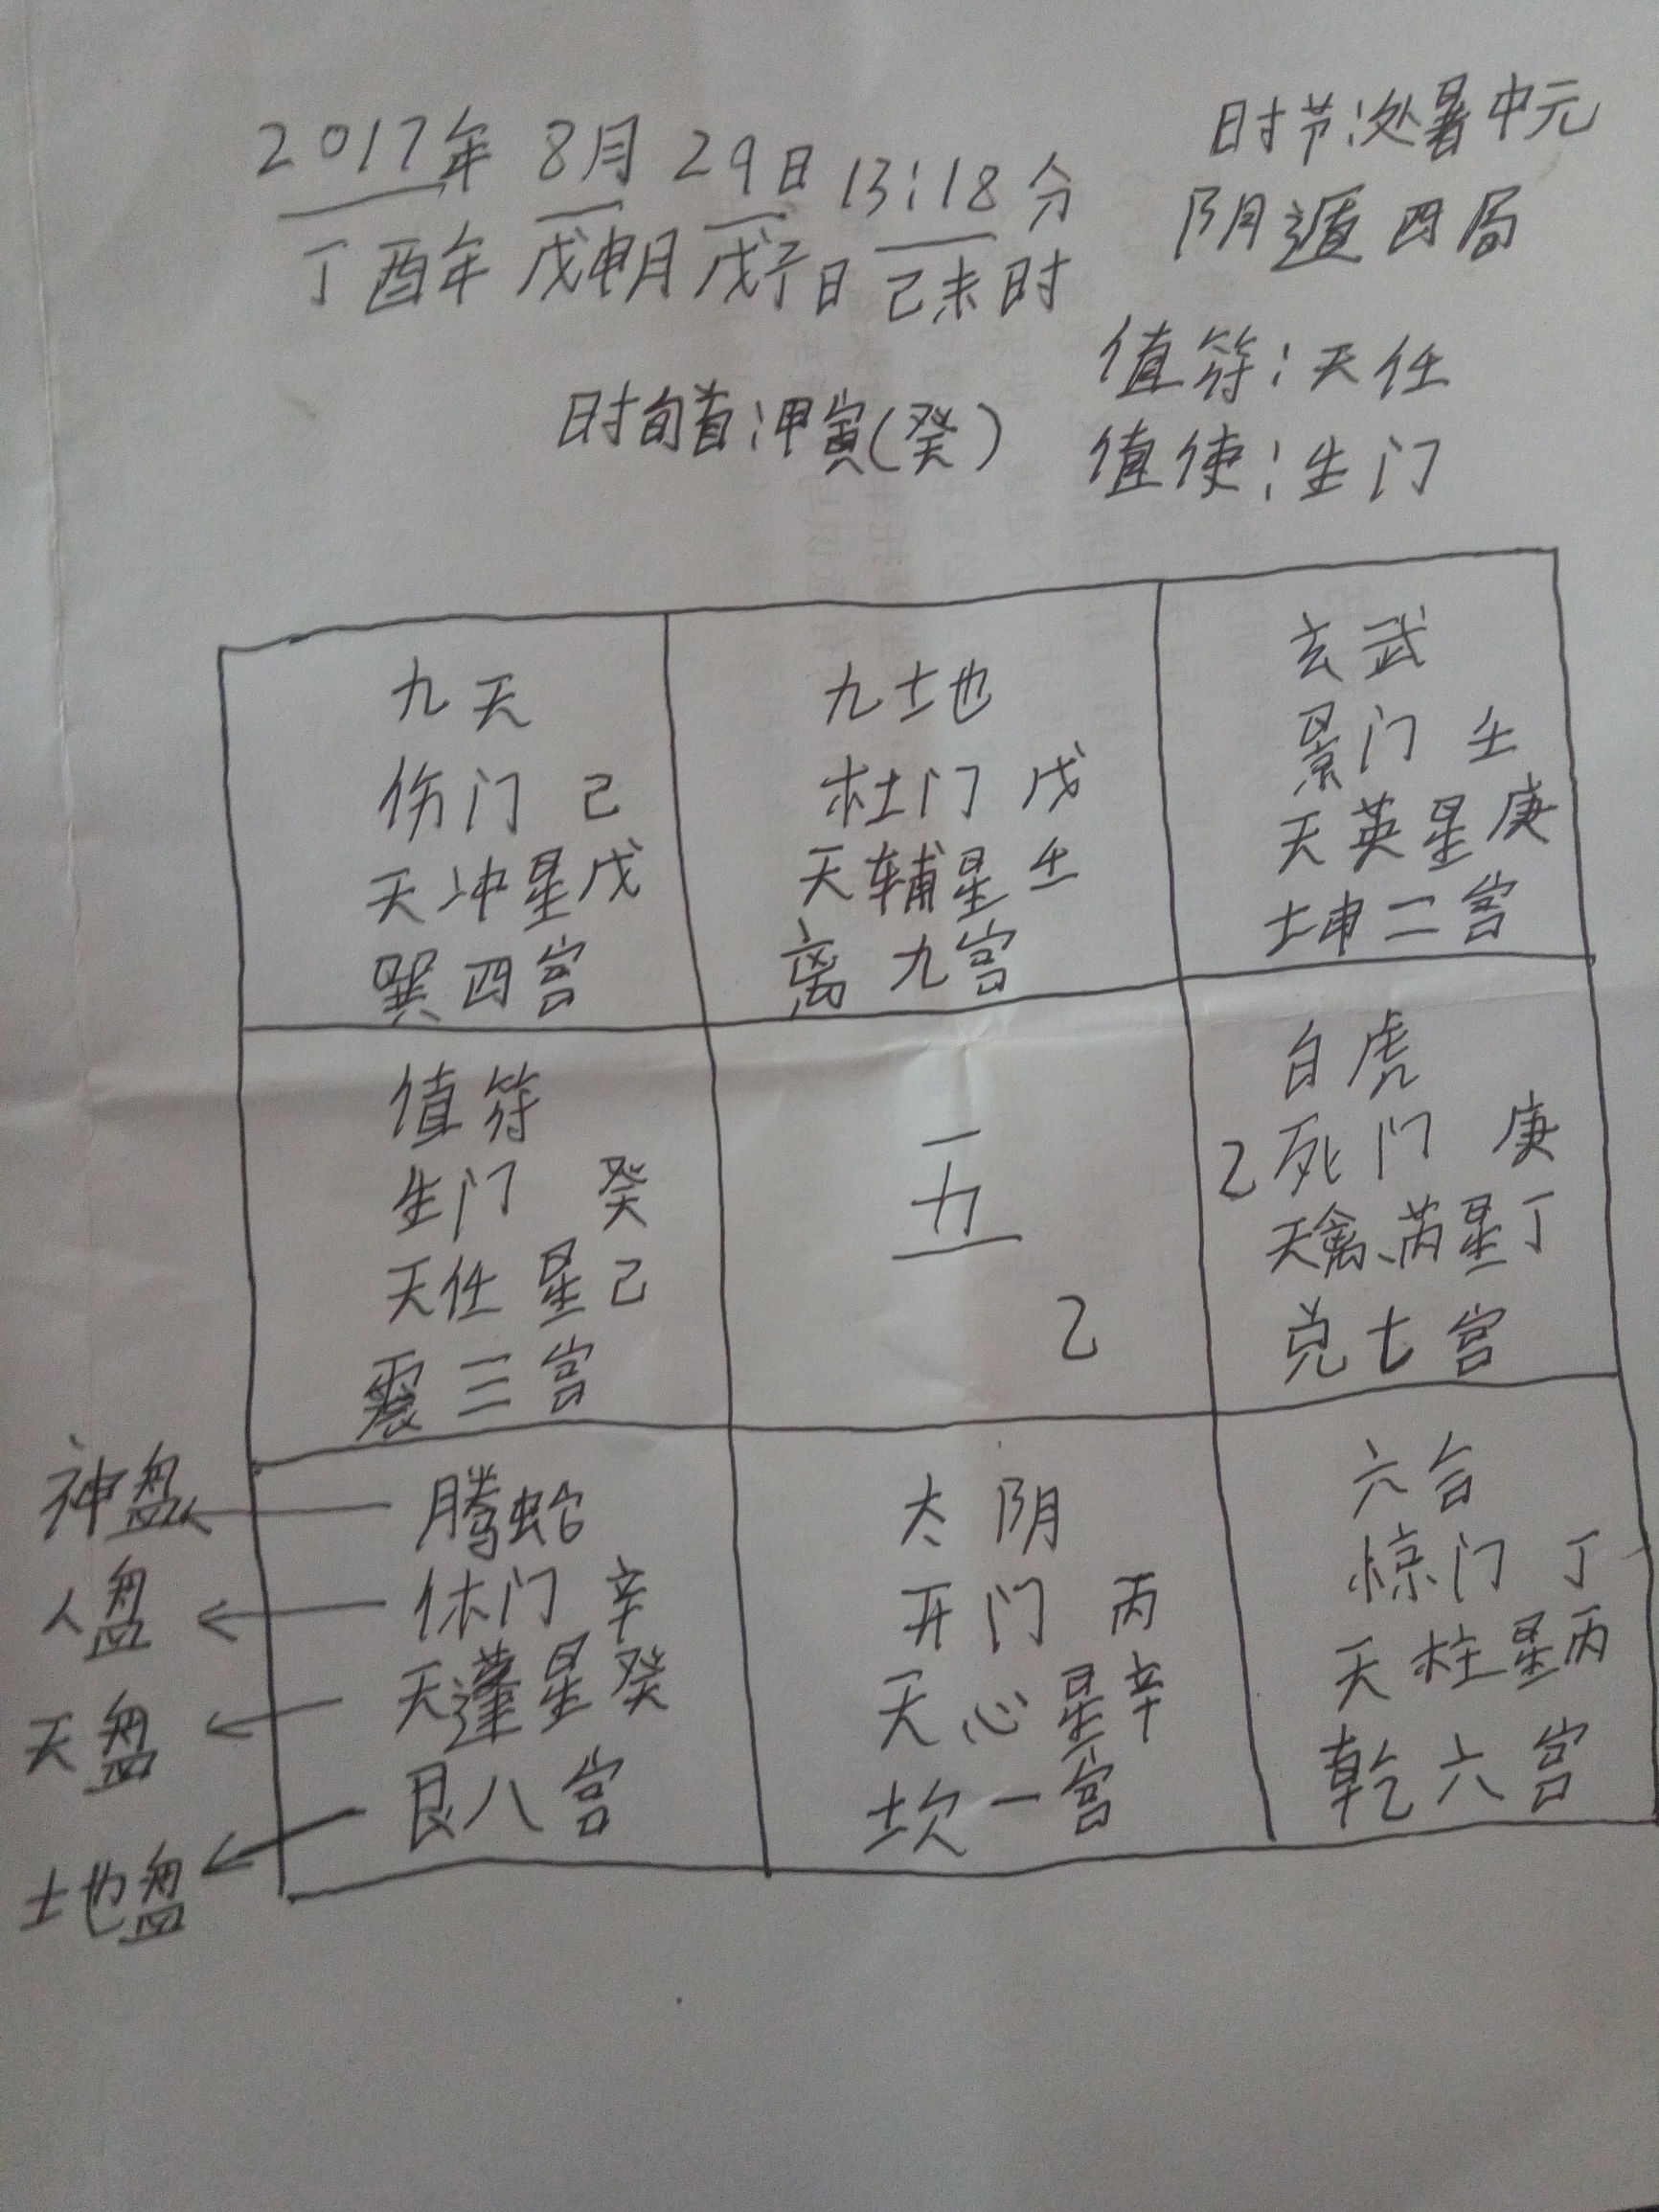 2017年 8月 29日 13:18分
时节:处暑中元
丁酉年 戊申月 戊子日 己未时
阴遁四局
时旬首:甲寅(癸)
值符:天任
值使:生门
九天
伤门 己
天冲星戊
巽四宫
九地
杜门 戊
天辅星壬
离九宫
玄武
景门 壬
天英星庚
坤二宫
值符
生门 癸
天任星己
震三宫
五
乙
白虎
乙死门 庚
天禽、芮星丁
兑七宫
神盘
人盘
天盘
地盘
腾蛇
休门 辛
天蓬星癸
艮八宫
太阴
开门 丙
天心星辛
坎一宫
六合
惊门 丁
天柱星丙
乾六宫